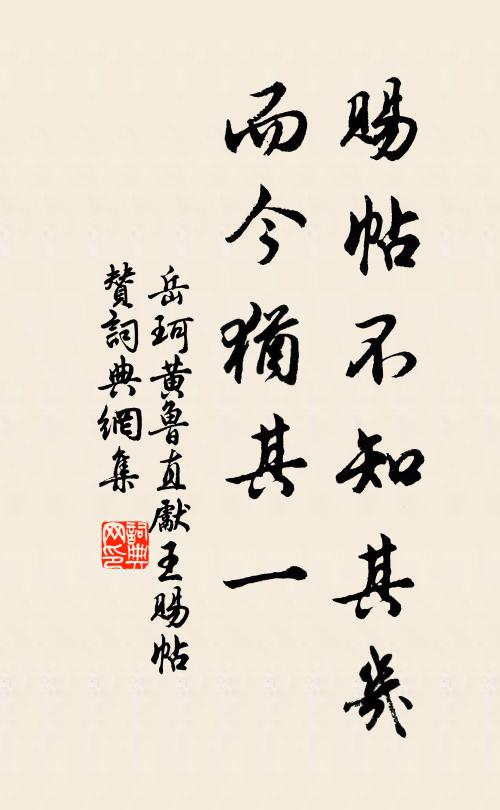 賜帖不知其幾
而今猶其一
岳珂黃魯直獻王賜帖
贊詞典網集
詞典网印